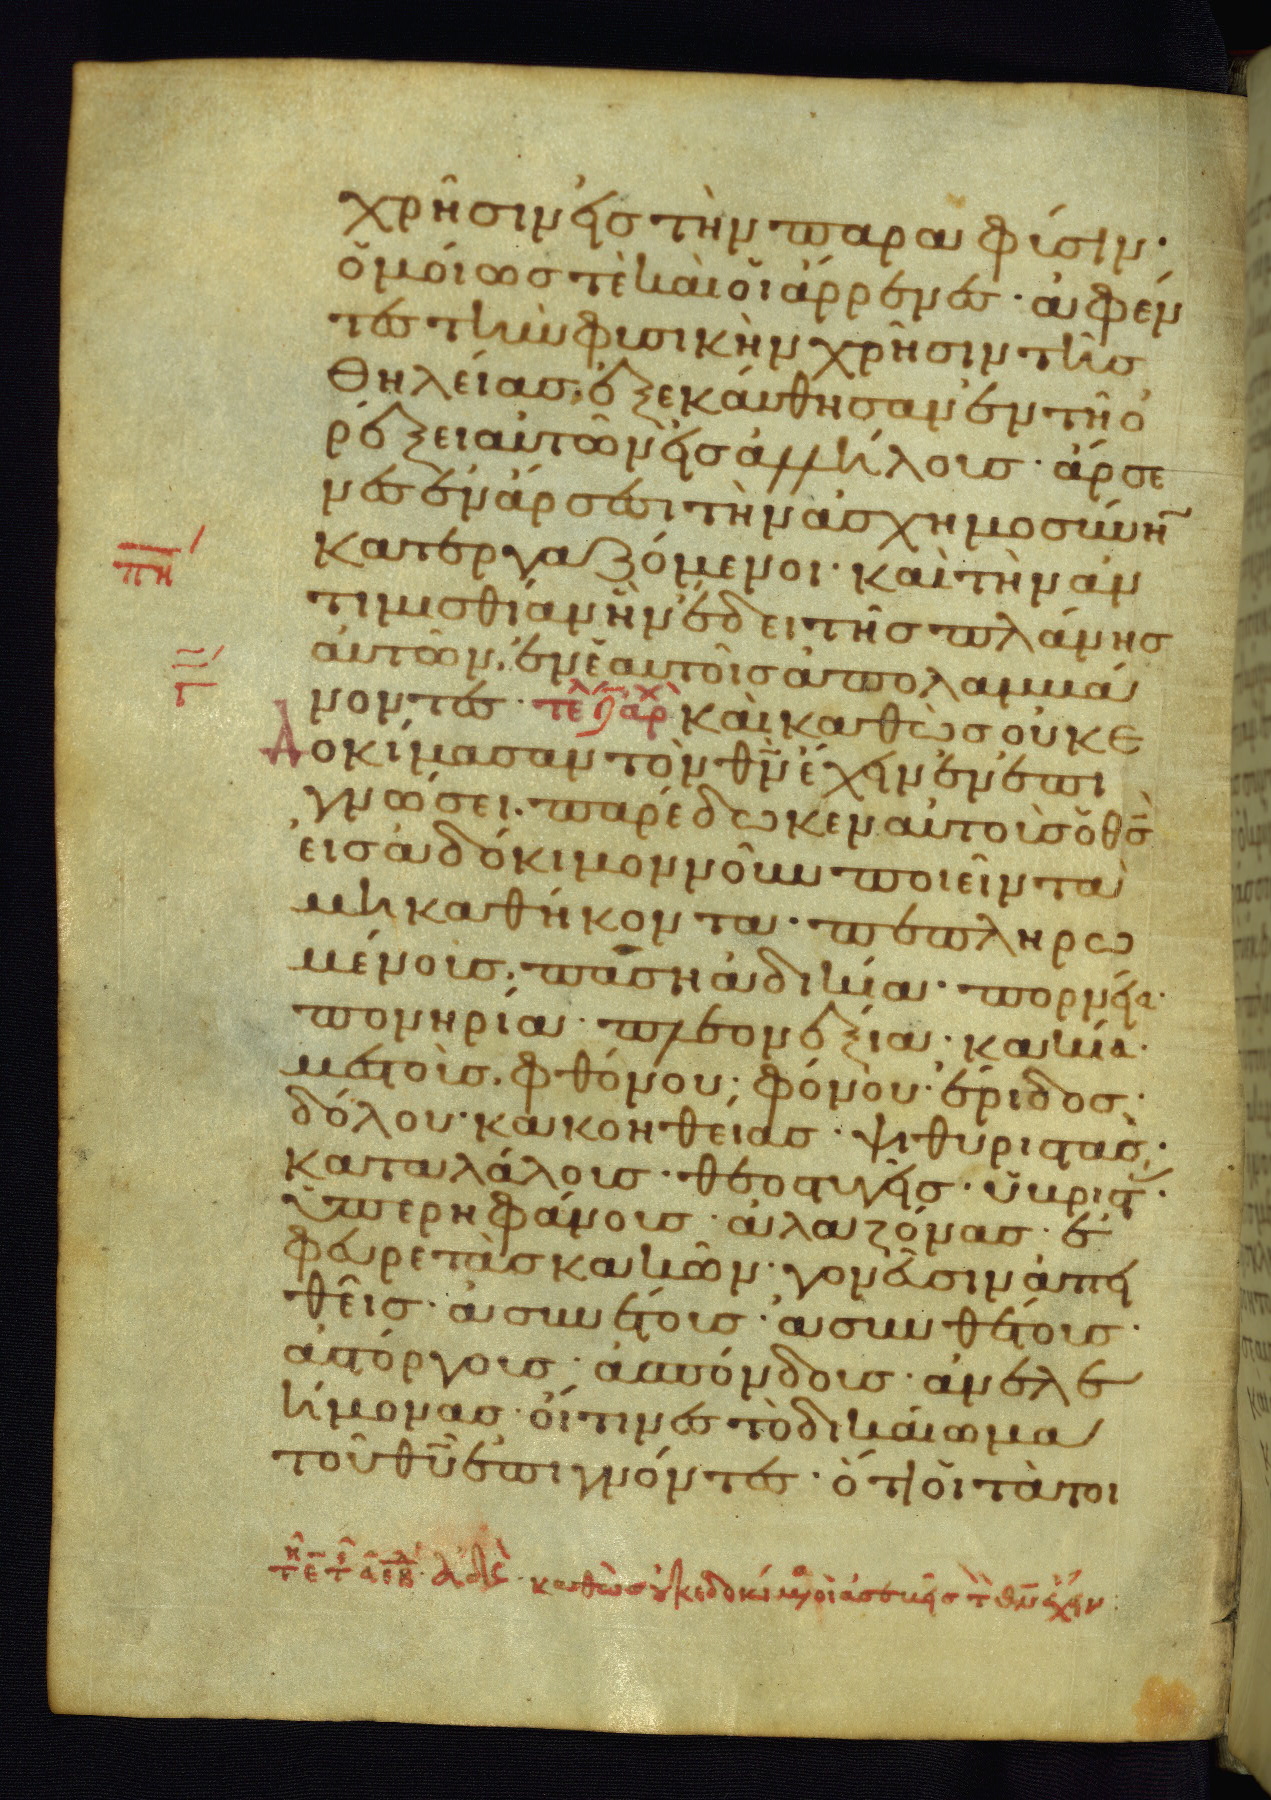 χρῆσιν εἰς τὴν παρα φύσιν·
ὁμοίως τὲ καὶ οἱ ἄρρενες· ἀφέν
τες τὴν φυσικὴν χρῆσιν τῆς
θηλείας, ἐξεκάυθησαν ἐν τῆ ὀ
ρέξει αὐτῶν εἰς ἀλλήλοις· ἄρσε
νες ἐν ἄρσεσι τὴν ἀσχημοσύνη
κατεργαζόμενοι· καὶ τὴν ἀν
τιμισθίαν ἣν ἔδει τῆς πλάνης
αὐτῶν, ἐν ἑαυτοῖς ἀπολαμβά
νοντες· τέλ ἀρχ καὶ καθὼς οὐκ ε
δοκίμασαν τὸν θν ἔχειν ἐν ἐπι
γνώσει· παρέδωκεν αὐτοὺς ὁ θς
εἰς ἀδόκιμον νοῦν ποιεῖν τὰ
μὴ καθήκοντα· πεπληρω
μένοις, πάση ἀδικία· πορνεία·
πονηρία· πλεονεξία· κακία·
μεστοὺς· φθόνου, φόνου· ἔριδος·
δόλου· κακοηθείας· ψιθυριστὰς·
καταλάλοις· θεοστυγεῖς· ὑβριστ·
ὑπερηφάνοις· ἀλαζόνας· ἐ
φευρετὰς κακῶν· γονεῦσιν ἀπει
θεῖς· ἀσυνέτοις· ἀσυνθέτοις·
ἀστόργοις· ἀσπόνδοις· ἀνελε
ήμονας· οἵτινες τὸ δικαίωμα
τοῦ θῦ ἐπιγνόντες· ὅτι οἱ τὰ τοι
πη
γ
καθὼς οὐκ ἐδοκίμασαν οἱ ἀσεβεῖς τὸν θν ἔχειν